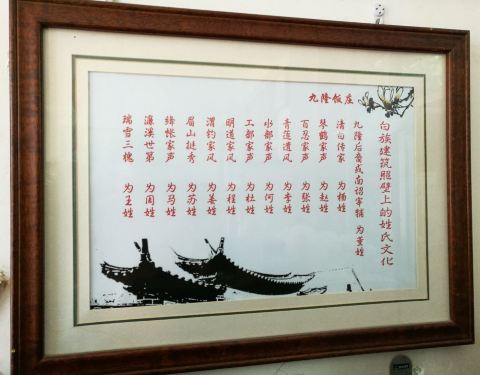 九隆饭店
白族建筑照壁上的姓氏文化
九隆后裔或南诏宰辅 为董姓
清白传家 为杨姓
琴鹤家声 为赵姓
百忍家声 为张姓
青莲遗风 为李姓
水部家声 为何姓
工部家声 为杜姓
明道家风 为程姓
渭钓家风 为姜姓
眉山挺秀 为苏姓
绛帐家声 为马姓
濂溪世第 为周姓
瑞雪三槐 为王姓